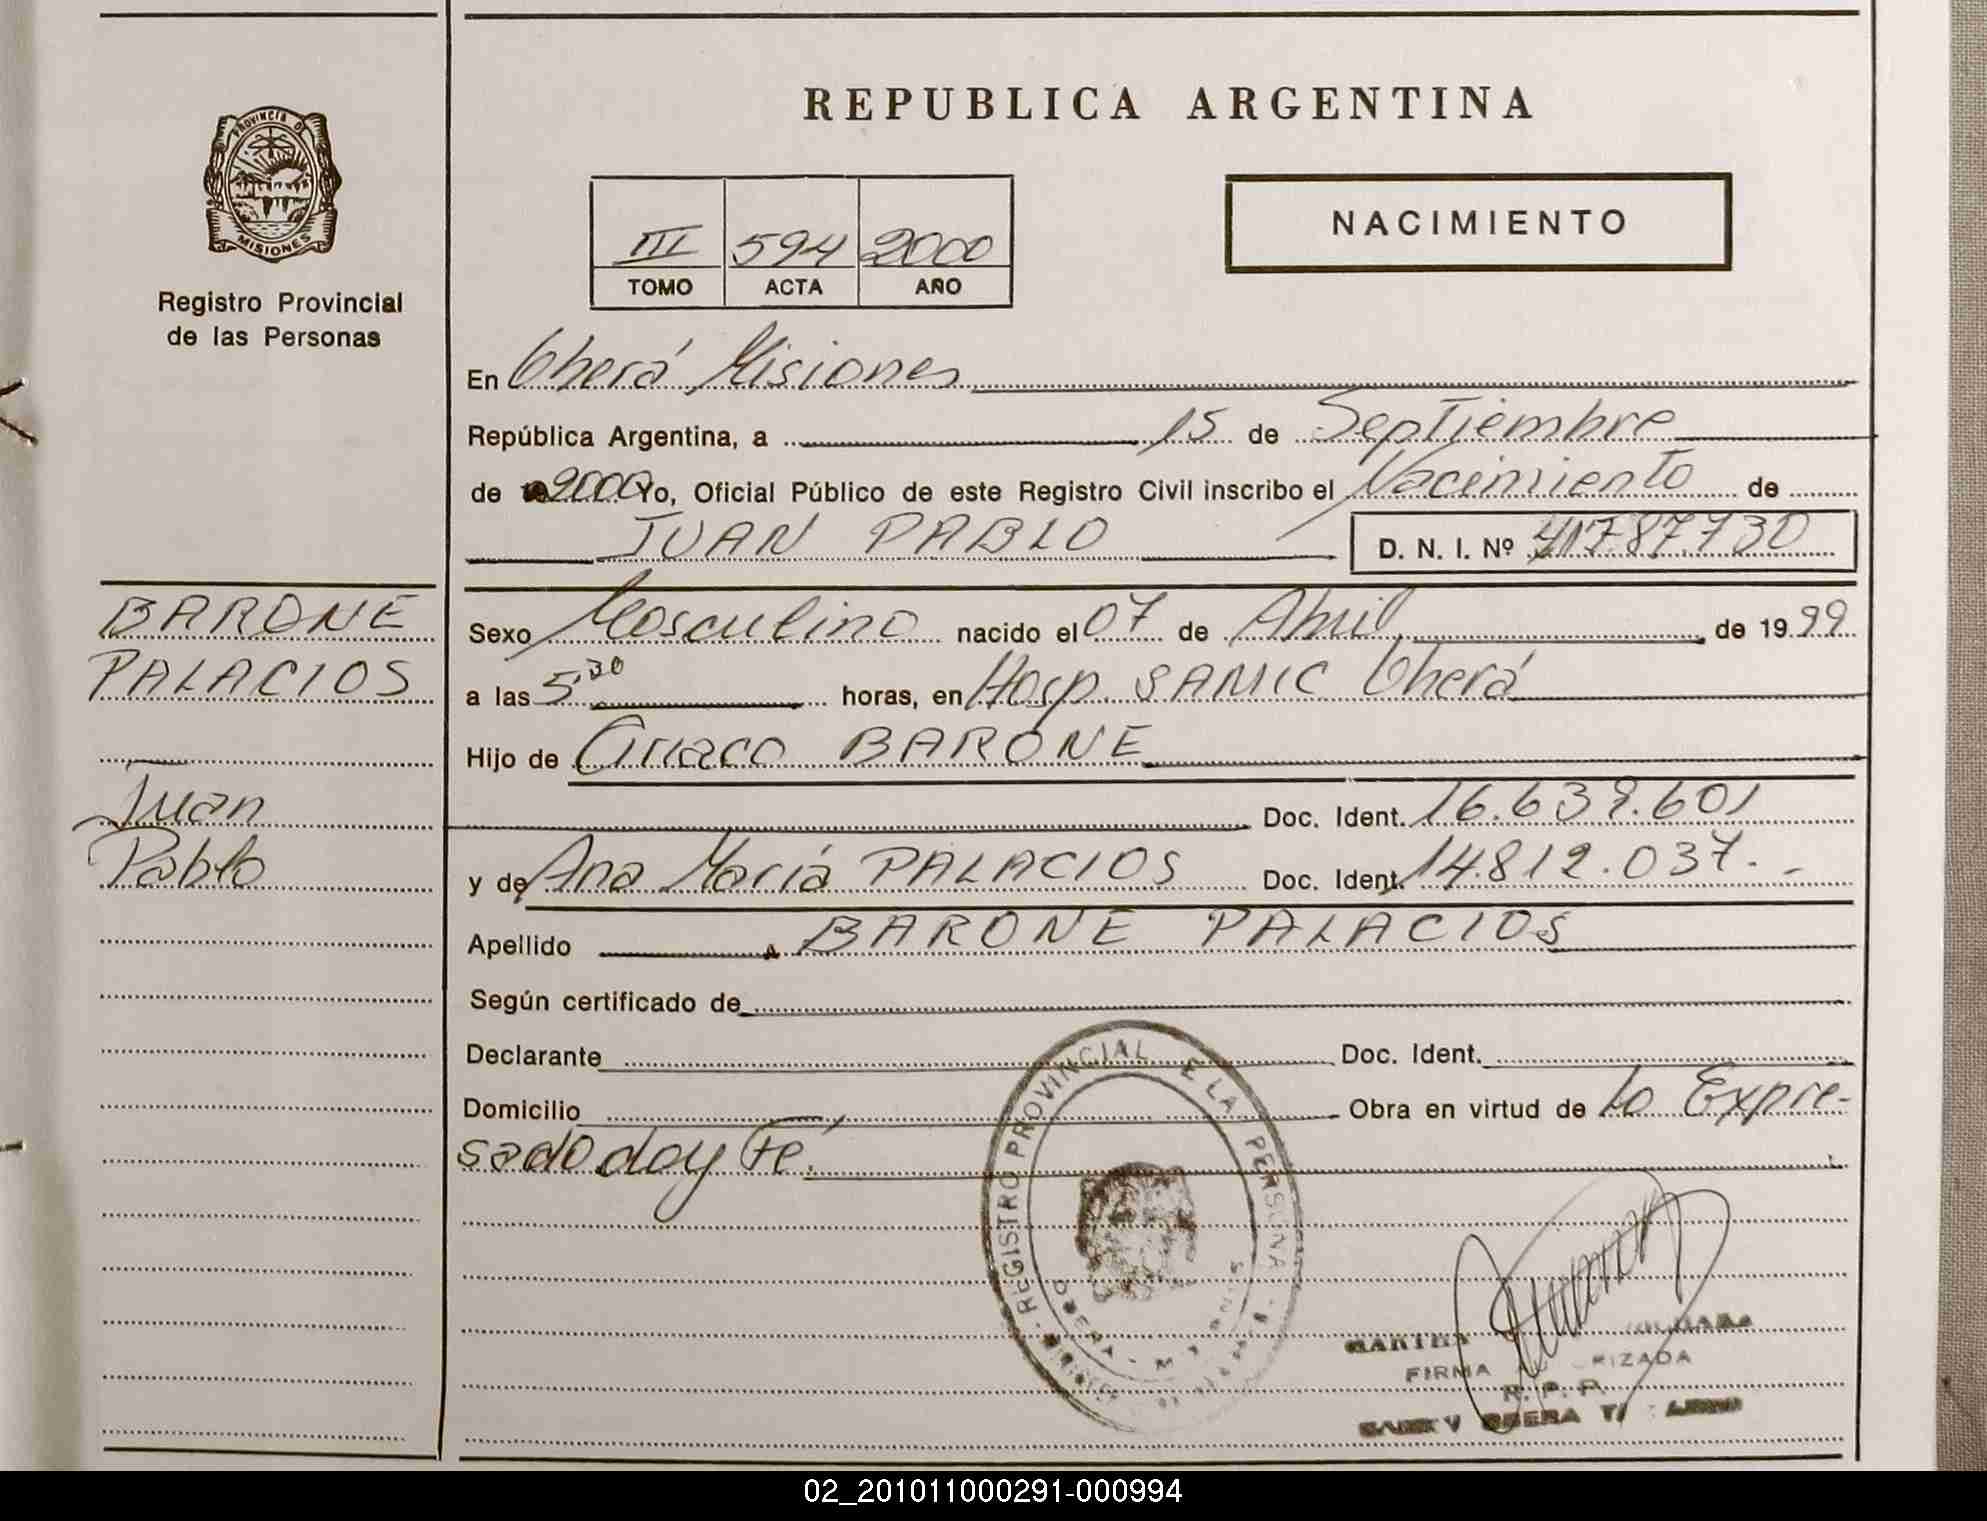 REPUBLICA ARGENTINA
PROVINCIA D
MISIONES
Registro Provincial
de las Personas
NACIMIENTO
III 594 2000
TOMO ACTA AÑO
En Oberá Misiones
República Argentina, a 15 de Septiembre
de 2000 Yo, Oficial Público de este Registro Civil inscribo el Nacimiento de
JUAN PABLO D. N. I. Nº 41.787.730
BARONE
PALACIOS
Juan
Pablo
Sexo Masculino nacido el 07 de Abril de 1999
a las 5:30 horas, en Hosp. SAMIC Oberá
Hijo de Ciriaco BARONE
Doc. Ident. 16.639.601
y de Ana María PALACIOS Doc. Ident. 14.812.037.-
Apellido BARONE PALACIOS
Según certificado de
Declarante Doc. Ident.
Domicilio Obra en virtud de lo Expre-
sado doy Fé.
REGISTRO PROVINCIAL E LA PERSONA
OBERA - M
FIRMA RIZADA
R. P. P.
OBERA
02_201011000291-000994